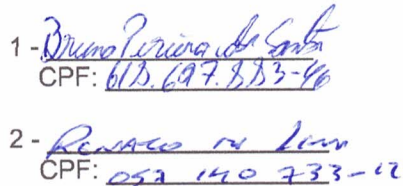 1 - Bruno Pereira dos Santos
CPF: 618.697.883-46
2 - Renato de Lima
CPF: 057 140 733-12